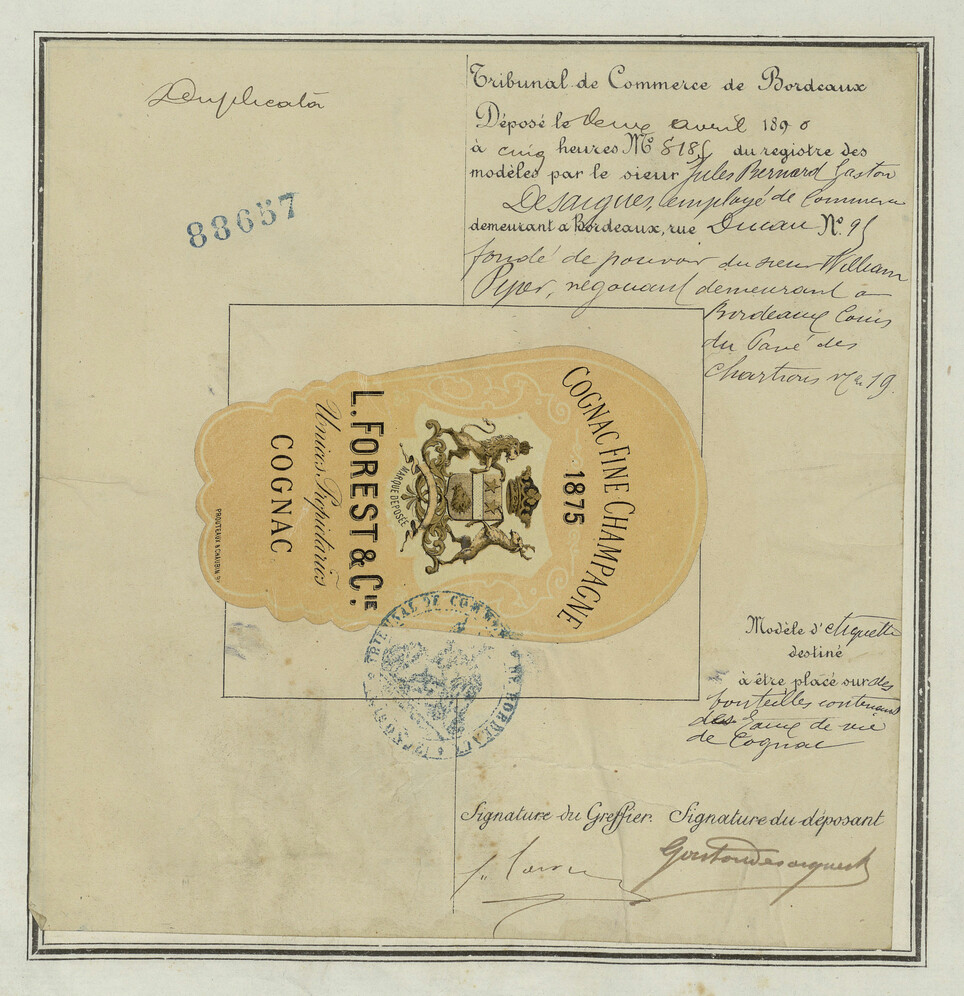 Duplicata
88657
Tribunal de Commerce de Bordeaux
Déposé le deux avril 1890
à cinq heures No 8185 du registre des
modèles par le sieur Jules Bernard Gaston
Desarques, employé de Commerce
demeurant à Bordeaux, rue Ducau No. 95
fondé de pouvoir du sieur William
Piper, négociant demeurant à
Bordeaux Cours
du Pavé des
Chartrons No 19.
COGNAC FINE CHAMPAGNE
1875
MARQUE DÉPOSÉE
L. FOREST & CIE.
Unicos Propietarios
COGNAC
TRIBUNAL DE COMMERCE DE BORDEAUX
Modèle d'étiquette
destiné
à être placé sur des
bouteilles contenant
des Eaux de vie
de Cognac
Signature du Greffier. Signature du déposant
Gaston Desarques